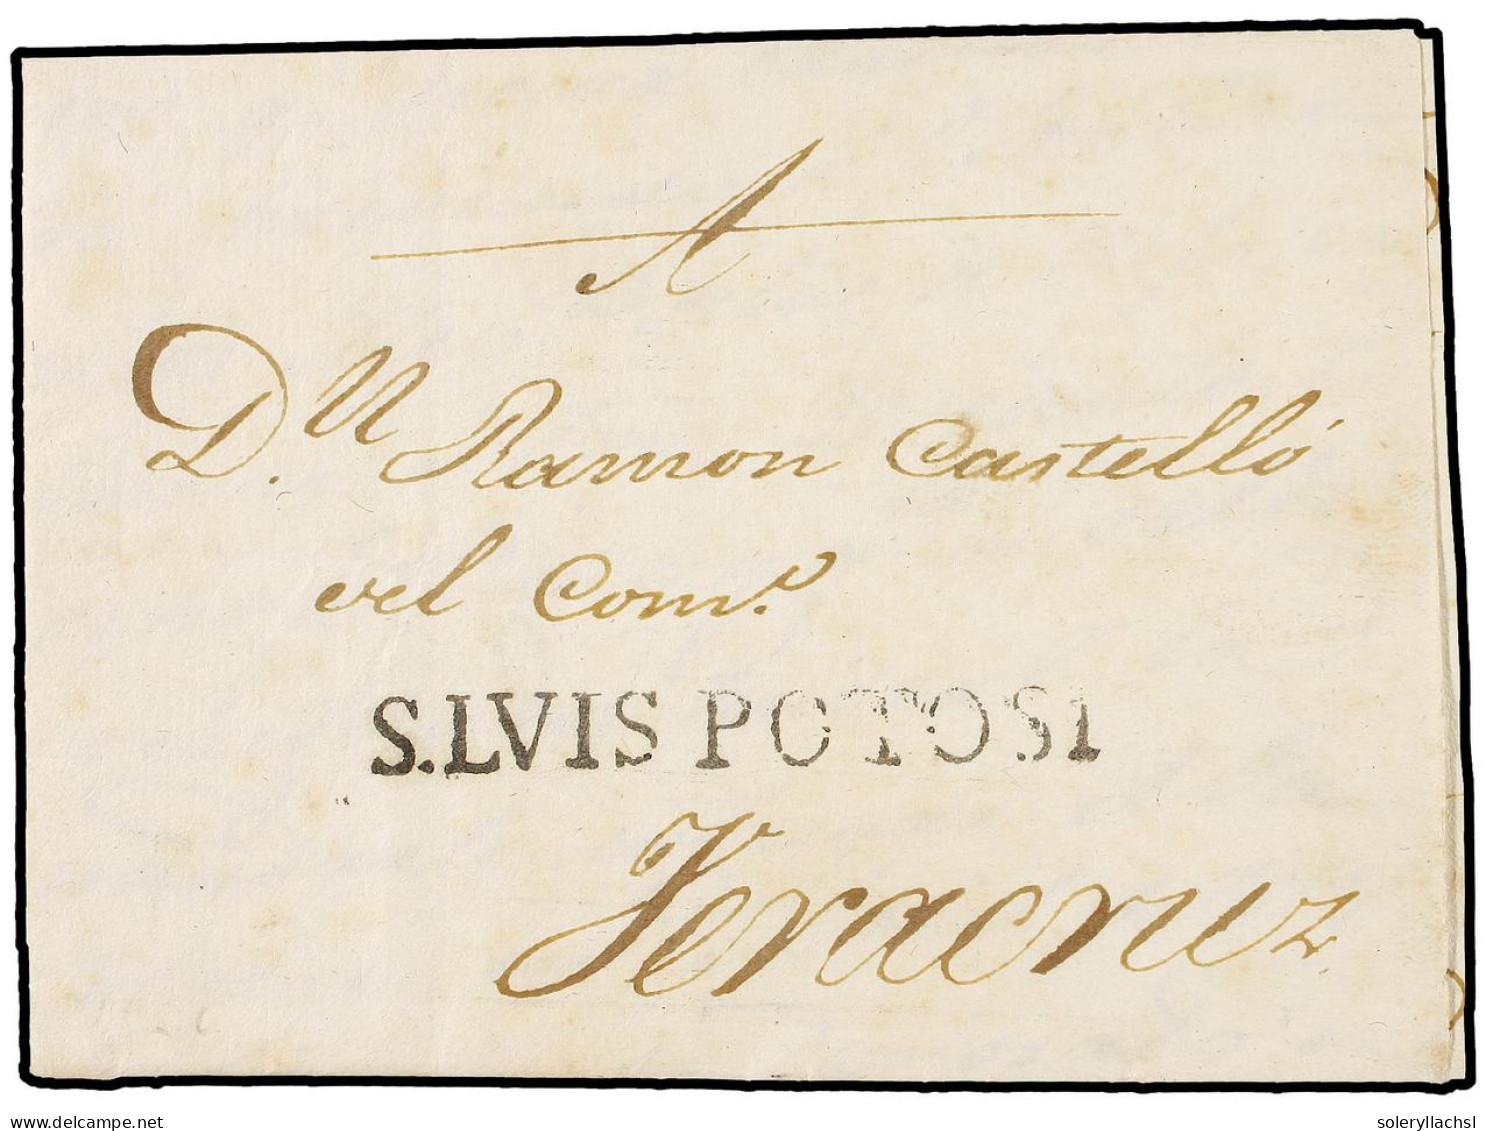 A
D.n Ramon Castelló
del Com.o
S.LVIS POTOSI
Veracruz
delcampe.net
soleryllachsl